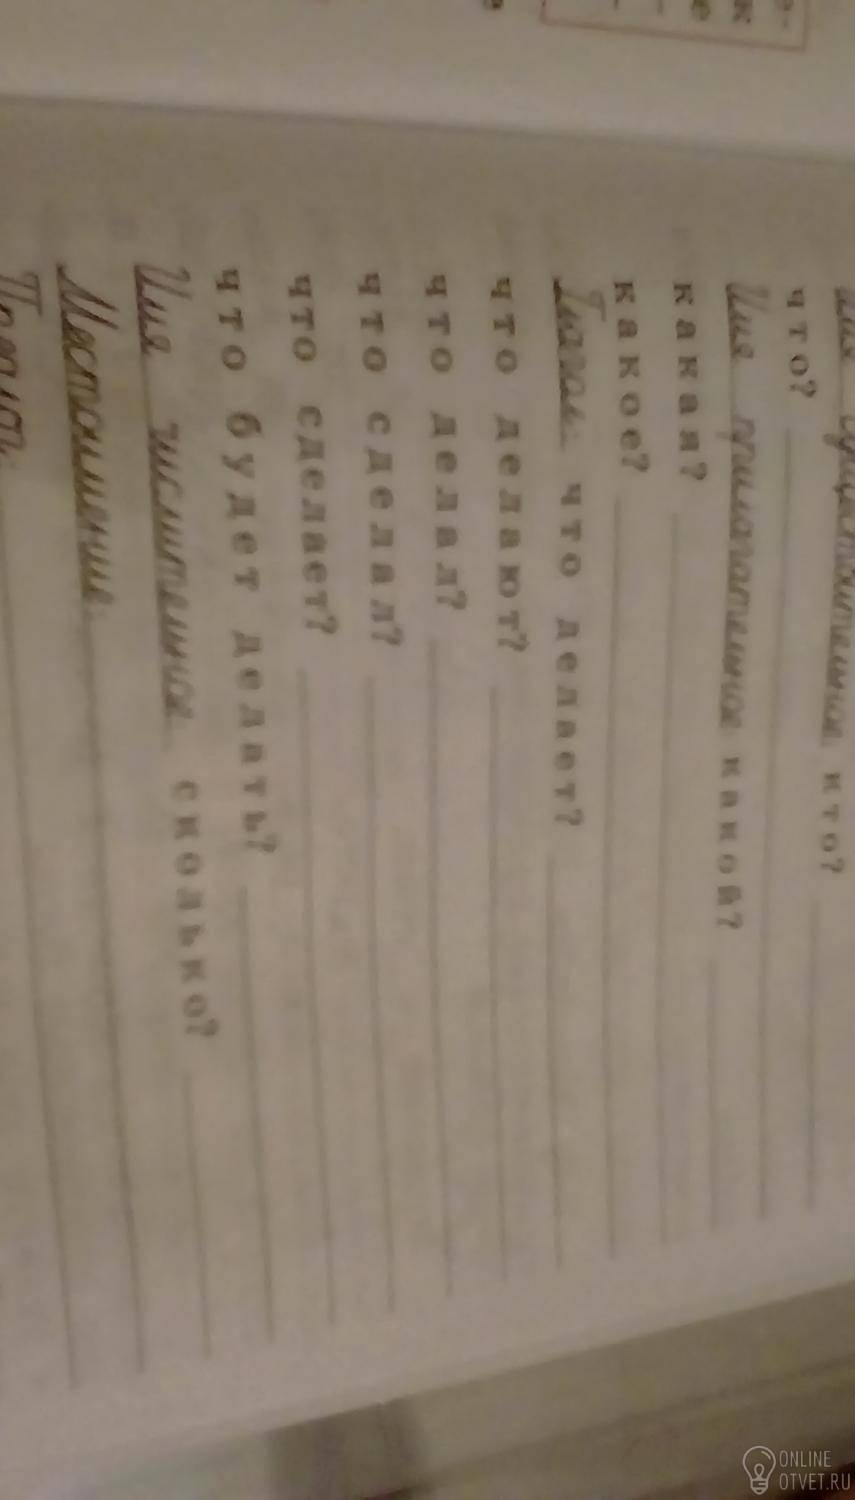 Имя существительное кто?
что?
Имя прилагательное какой?
какая?
какое?
Глагол: что делает?
что делают?
что делал?
что сделал?
что сделает?
что будет делать?
Имя числительное сколько?
Местоимение
ONLINE
OTVET.RU